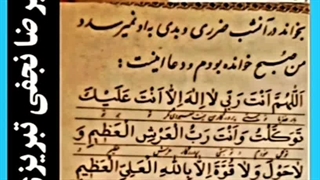 بخواند در آنشب ضرری و بدی به او نمیرسد و
من صبح خوانده بودم و دعا اینست :
اَللّٰهُمَّ اَنْتَ رَبّی لٰا اِلٰهَ اِلّٰا اَنْتَ عَلَیْکَ
تَوَکَّلْتُ وَاَنْتَ رَبُّ الْعَرْشِ الْعَظیمِ وَ
لٰاحَوْلَ وَ لٰا قُوَّةَ اِلّٰا بِاللّٰهِ الْعَلِیِّ الْعَظیمِ
رضا نجفی تبریزی